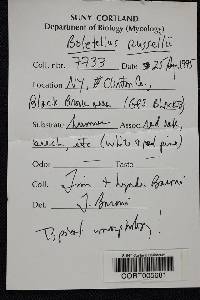 SUNY CORTLAND
Department of Biology (Mycology)
Boletellus russellii
Coll. nbr. 7733 Date 25 Aug 1995
Location NY, Clinton Co.,
Black Brook
Substrate humus Assoc. red oak,
beech, etc (white & red pine)
Odor Taste
Coll. Tim & Lynda Baroni
Det. T. Baroni
Typical morphology!